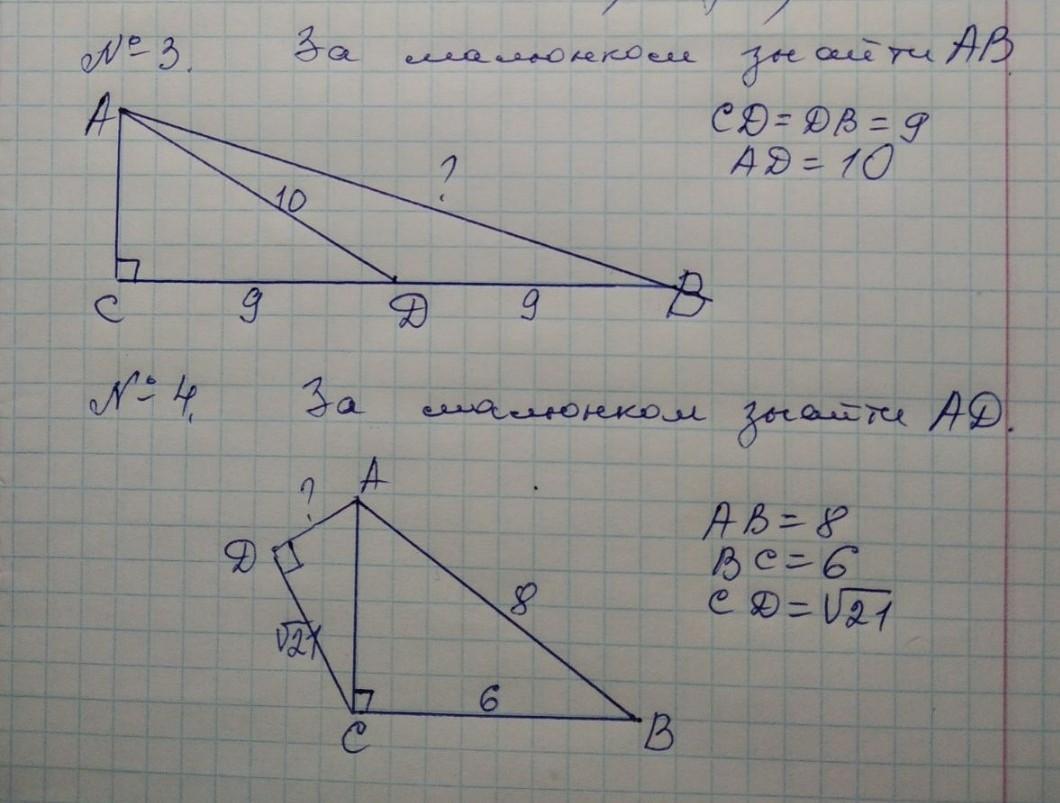 № 3. За малюнком знайти AB
CD = DB = 9
AD = 10
A
?
10
C 9 D 9 B
№ 4. За малюнком знайти AD.
? A
AB = 8
D
BC = 6
8
CD = √21
√21
6
C B